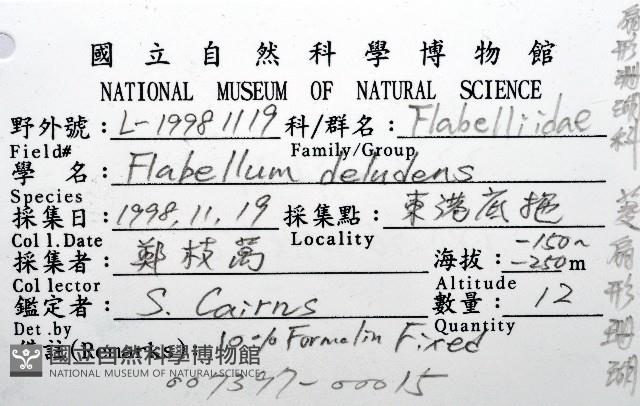 國立自然科學博物館
NATIONAL MUSEUM OF NATURAL SCIENCE
野外號：L-19981119 科/群名：Flabelliidae
Field# Family/Group
學名：Flabellum deludens
Species
採集日：1998.11.19 採集點：東港底拖
Coll.Date Locality
採集者：鄭枝萬 海拔：-150~-250m
Collector Altitude
鑑定者：S. Cairns 數量：12
Det.by Quantity
備註(Remarks)：10% Formalin Fixed
國立自然科學博物館
NATIONAL MUSEUM OF NATURAL SCIENCE
007377-00015
扇形珊瑚科 菱扇形珊瑚